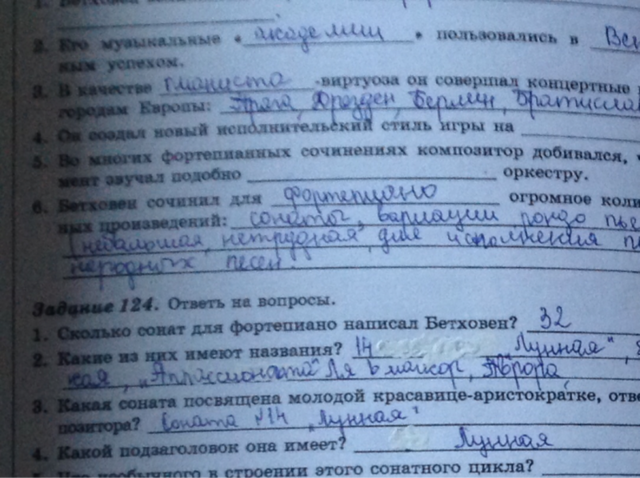 1. Бетховен
2. Его музыкальные « академии » пользовались в Вен
ным успехом.
3. В качестве пианиста -виртуоза он совершал концертные
городам Европы: Прага, Дрезден, Берлин, Братисла
4. Он создал новый исполнительский стиль игры на
5. Во многих фортепианных сочинениях композитор добивался,
мент звучал подобно оркестру.
6. Бетховен сочинил для фортепиано огромное коли
ных произведений: сонаты, вариации рондо пье
(небольшая, нетрудная для исполнения п
народных песен.
Задание 124. Ответь на вопросы.
1. Сколько сонат для фортепиано написал Бетховен? 32
2. Какие из них имеют названия? 14 "Лунная",
кая, "Аппассионата" Ля мажор, Аврора,
3. Какая соната посвящена молодой красавице-аристократке, отве
позитора? Соната №14 "Лунная"
4. Какой подзаголовок она имеет? Лунная
5. Что необычного в строении этого сонатного цикла?